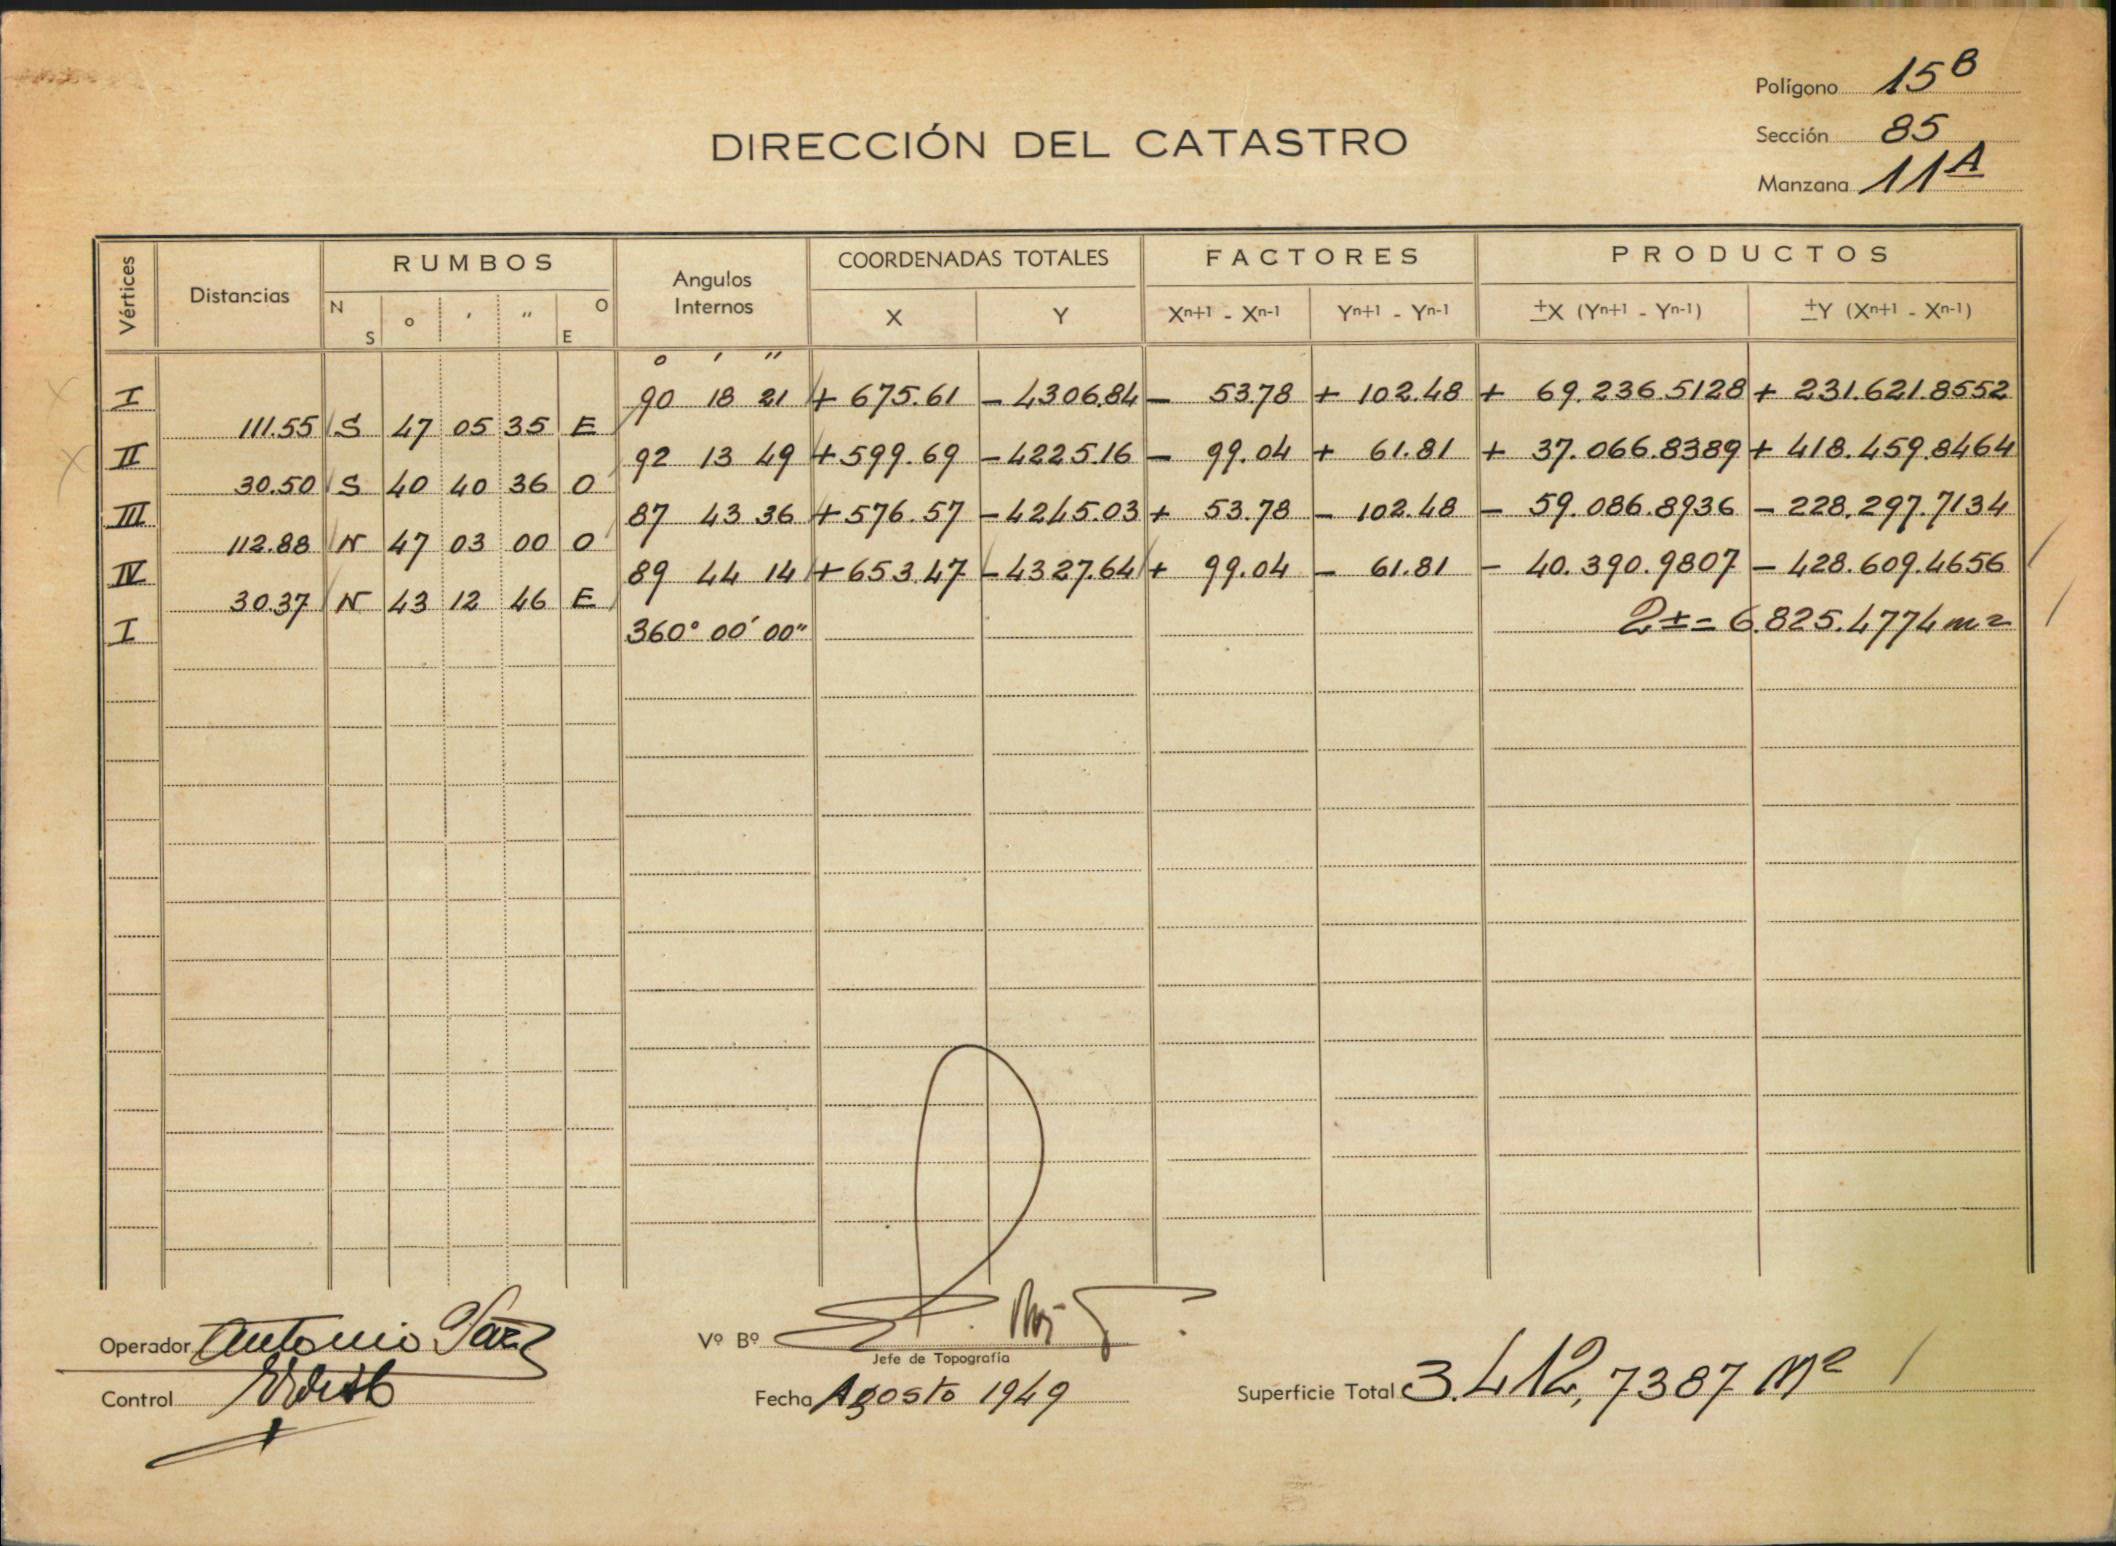 Polígono 15B
DIRECCIÓN DEL CATASTRO
Sección 85
Manzana 11A
Vértices Distancias RUMBOS Angulos Internos COORDENADAS TOTALES FACTORES PRODUCTOS
N S o ' " O E X Y Xn+1 - Xn-1 Yn+1 - Yn-1 ±X (Yn+1 - Yn-1) ±Y (Xn+1 - Xn-1)
o ' "
I 90 18 21 + 675.61 - 4306.84 - 53.78 + 102.48 + 69.236.5128 + 231.621.8552
111.55 S 47 05 35 E
II 92 13 49 + 599.69 - 4225.16 - 99.04 + 61.81 + 37.066.8389 + 418.459.8464
30.50 S 40 40 36 O
III 87 43 36 + 576.57 - 4245.03 + 53.78 - 102.48 - 59.086.8936 - 228.297.7134
112.88 N 47 03 00 O
IV 89 44 14 + 653.47 - 4327.64 + 99.04 - 61.81 - 40.390.9807 - 428.609.4656
30.37 N 43 12 46 E
I 360° 00' 00" 2 ± = 6.825.4774 m2
Operador Antonio Vº Bº
Jefe de Topografía
Control Fecha Agosto 1949 Superficie Total 3.412,7387 M2